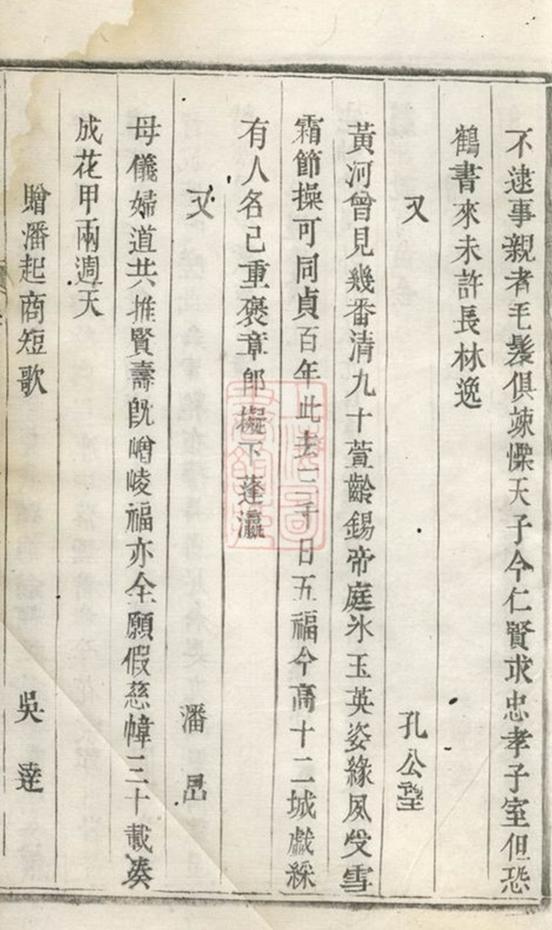 不逮事親者毛髮俱竦慄天子今仁賢求忠孝子室但恐
鶴書來未許長林逸
又 孔公
黃河曾見幾番清九十萱齡錫帝庭氷玉英姿緣夙受雪
霜節操可同貞百年此去三千日五福今高十二城戲綵
有人名已重褒章郎擬下蓬瀛
又 潘
母儀婦道共推賢壽旣嶒崚福亦全願假慈幃三十載湊
成花甲兩週天
贈潘起商短歌 吳逵